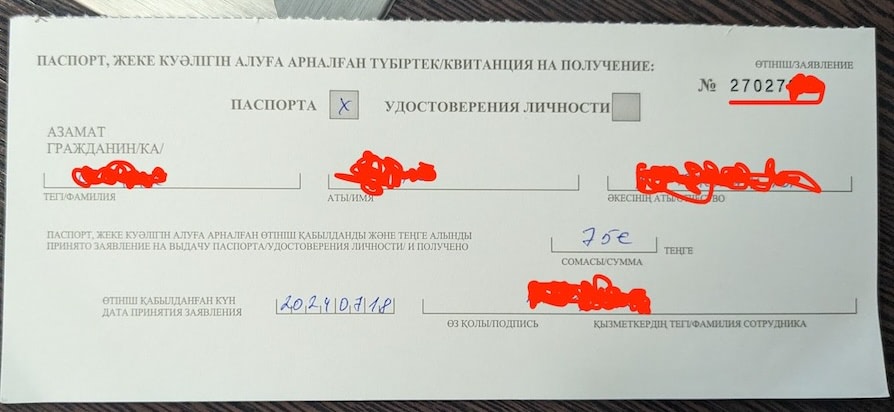 ПАСПОРТ, ЖЕКЕ КУӘЛІГІН АЛУҒА АРНАЛҒАН ТҮБІРТЕК/КВИТАНЦИЯ НА ПОЛУЧЕНИЕ:
ӨТІНІШ/ЗАЯВЛЕНИЕ
№ 27027
ПАСПОРТА X УДОСТОВЕРЕНИЯ ЛИЧНОСТИ
АЗАМАТ
ГРАЖДАНИН/КА/
ТЕГІ/ФАМИЛИЯ АТЫ/ИМЯ ӘКЕСІНІҢ
ПАСПОРТ, ЖЕКЕ КУӘЛІГІН АЛУҒА АРНАЛҒАН ӨТІНІШ ҚАБЫЛДАНДЫ ЖӘНЕ ТЕҢГЕ АЛЫНДЫ
ПРИНЯТО ЗАЯВЛЕНИЕ НА ВЫДАЧУ ПАСПОРТА/УДОСТОВЕРЕНИЯ ЛИЧНОСТИ/ И ПОЛУЧЕНО
75€ ТЕҢГЕ
СОМАСЫ/СУММА
ӨТІНІШ ҚАБЫЛДАНҒАН КҮН
ДАТА ПРИНЯТИЯ ЗАЯВЛЕНИЯ 20240718
ӨЗ ҚОЛЫ/ПОДПИСЬ ҚЫЗМЕТКЕРДІҢ ТЕГІ/ФАМИЛИЯ СОТРУДНИКА